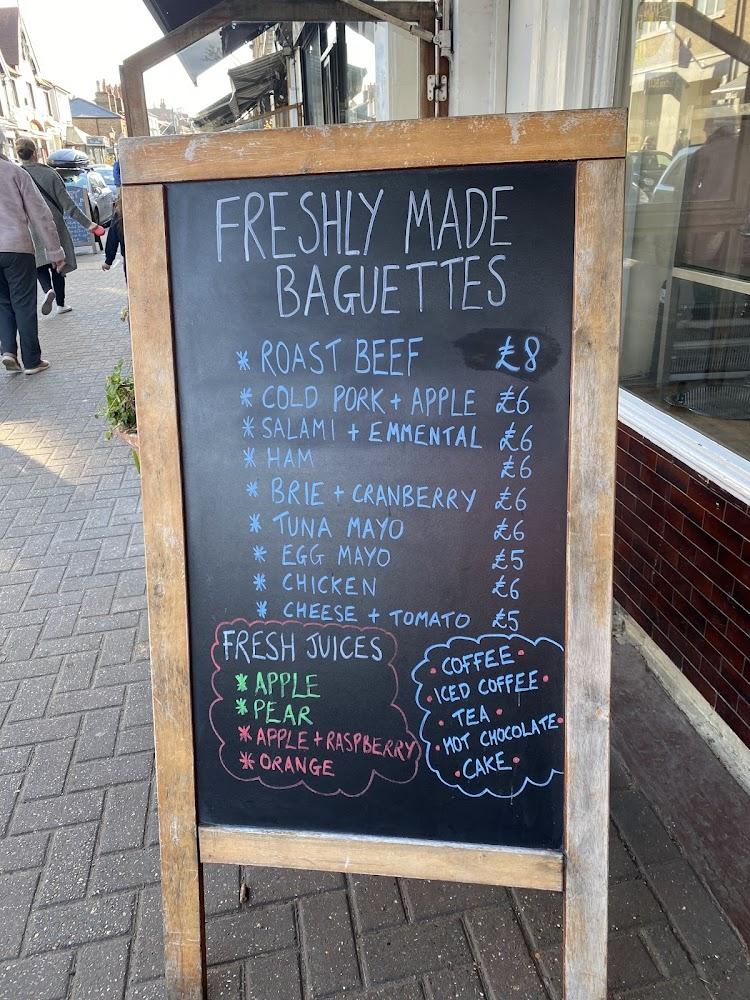 FRESHLY MADE
BAGUETTES
* ROAST BEEF £8
* COLD PORK + APPLE £6
* SALAMI + EMMENTAL £6
* HAM £6
* BRIE + CRANBERRY £6
* TUNA MAYO £6
* EGG MAYO £5
* CHICKEN £6
* CHEESE + TOMATO £5
FRESH JUICES
* APPLE
* PEAR
* APPLE + RASPBERRY
* ORANGE
• COFFEE •
• ICED COFFEE •
• TEA •
• HOT CHOCOLATE •
• CAKE •